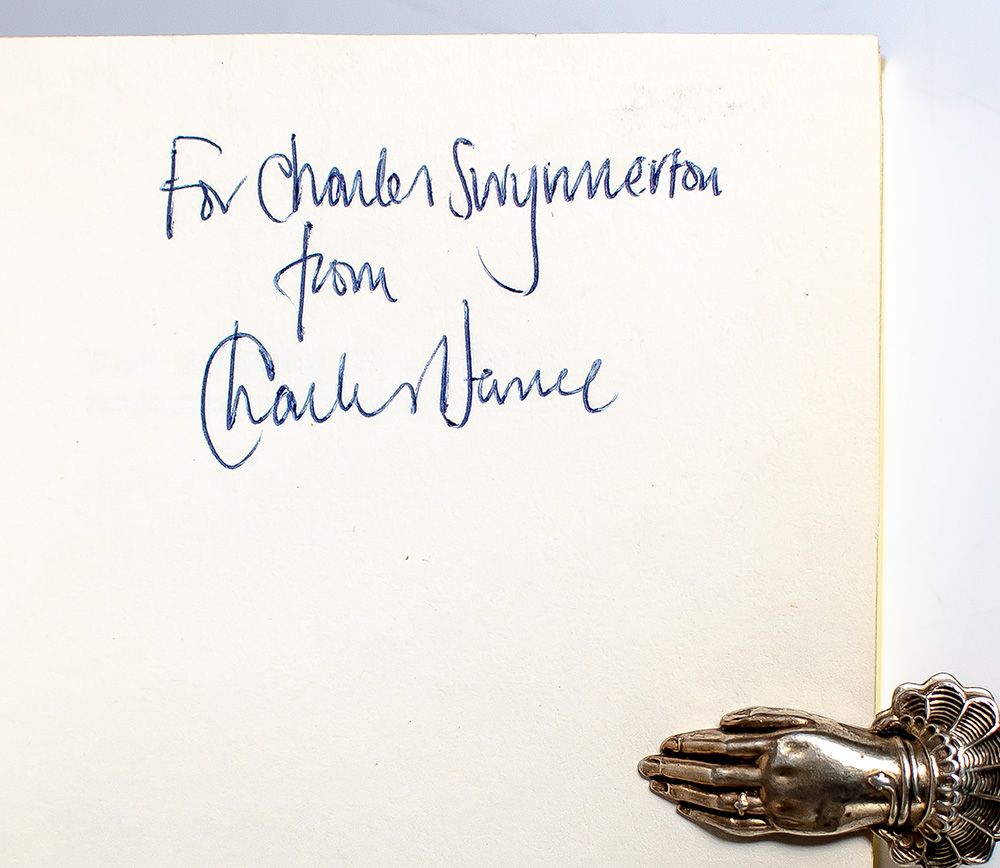 For Charles Swynnerton
from
Charles Hance